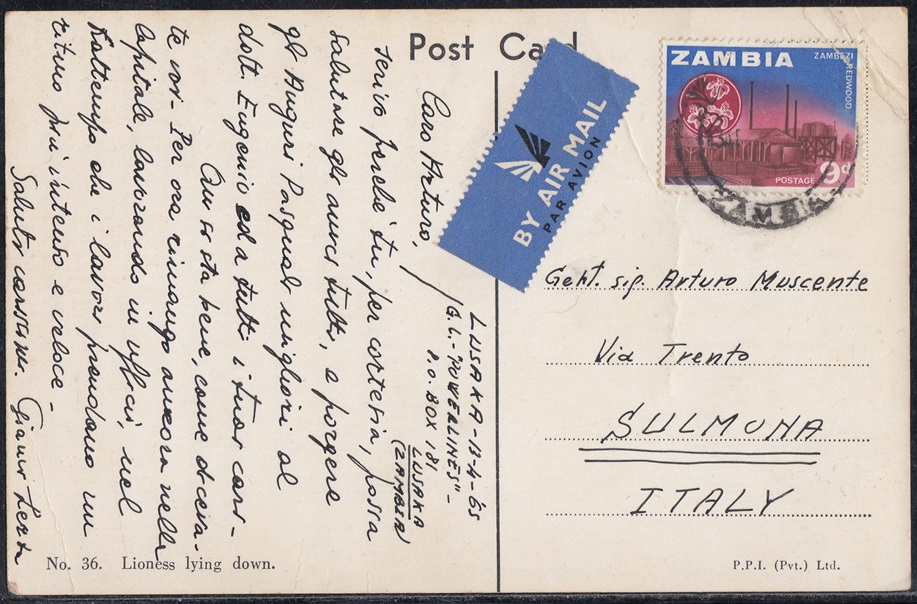 Post Card
BY AIR MAIL
PAR AVION
ZAMBIA
ZAMBEZI
REDWOOD
POSTAGE
9d
ZAMBIA
LUSAKA - 13-4-65
G.L. - "POWERLINES" -
P.O. BOX 181
LUSAKA
(ZAMBIA)
Caro Arturo,
scrivo perché tu, per cortesia, possa
salutare gli amici tutti, e porgere
gli Auguri Pasquali migliori al
dott. Eugenio ed a tutti i tuoi cari -
Qui si sta bene, come diceva-
te voi - Per ora rimango ancora nella
Capitale, lavorando in ufficio, nel
frattempo che i lavori prendano un
ritmo più intenso e veloce -
Saluti carissimi.
Gent. sig. Arturo Muscente
Via Trento
SULMONA
ITALY
No. 36. Lioness lying down.
P.P.I. (Pvt.) Ltd.